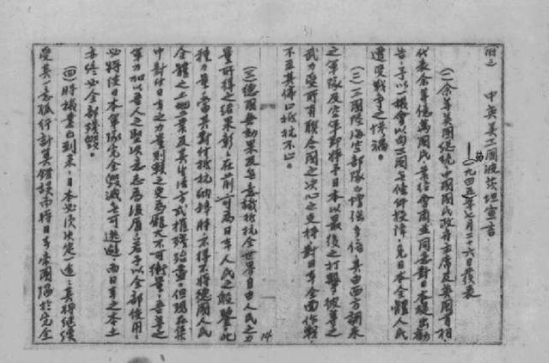 附二　中美英三國波茨坦宣言
——一九四五年七月二十六日發表
（一）余等美國總統、中國國民政府主席及英國首相
代表余等億萬國民，業經會商並同意對日本應
告，予以一機會以
國
日本全體人民
遭受戰爭之慘禍。
（二）三國陸海空部隊
增強多倍，
由西方調來
之軍隊及空軍即將予日本以最後之打擊，彼等之
武力受所有聯合國之決心之支持對日本全面作戰，
不至其停止抵抗不止。
（三）德國無效果及無意識抵抗全世界自由人民之力
量所得之結果，彰彰在前，可為日本人民之殷鑒。此
種力量當其對付抵抗納粹時不得不將德國人民
全體之土地工業及其生活方式摧殘殆盡。但現在集
中對付日本之力量則較之更為龐大不可衡量。吾等之
軍力加以吾人之堅決意志為後盾，若予以全部使用，
必將使日本軍隊完全毀滅，無可逃避，而日本之本土
亦終必全部殘毀。
（四）時機業已到來，日本必須決定一途，其將繼續
受其一意孤行計算錯誤而將日本帝國陷於完全